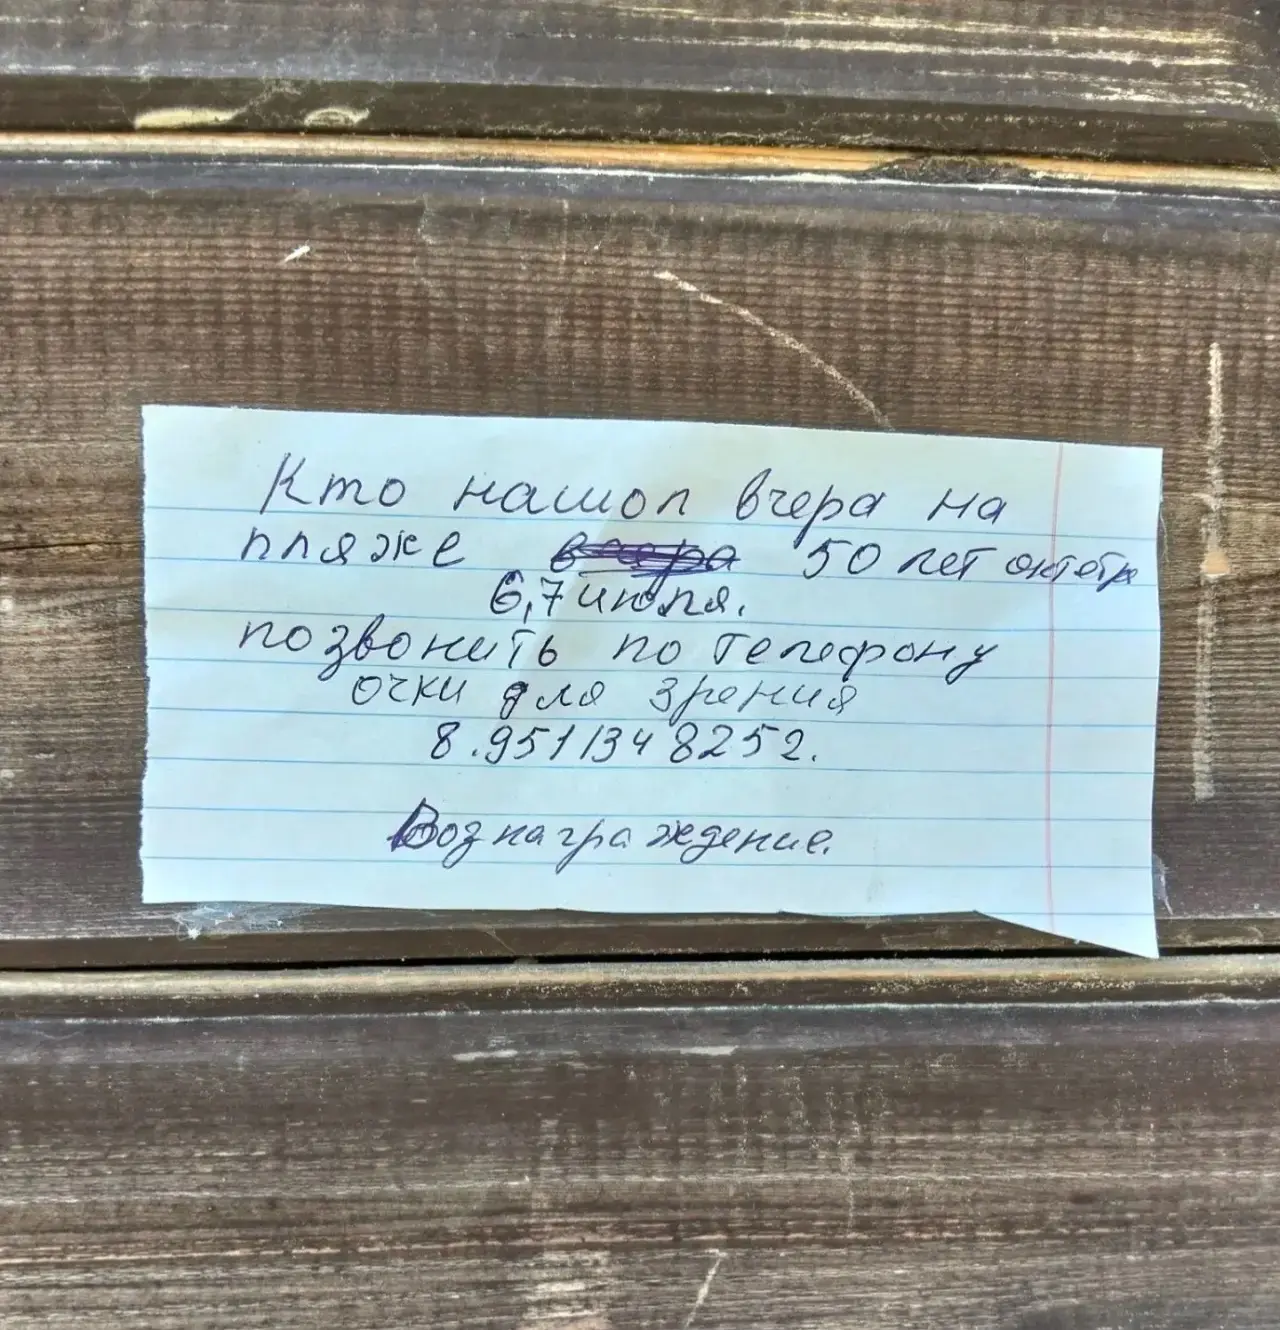 Кто нашол вчера на
пляже 50 лет октетр
6,7 июля.
позвонить по телефону
очки для зрения
8.9511348252.
Вознаграждение.